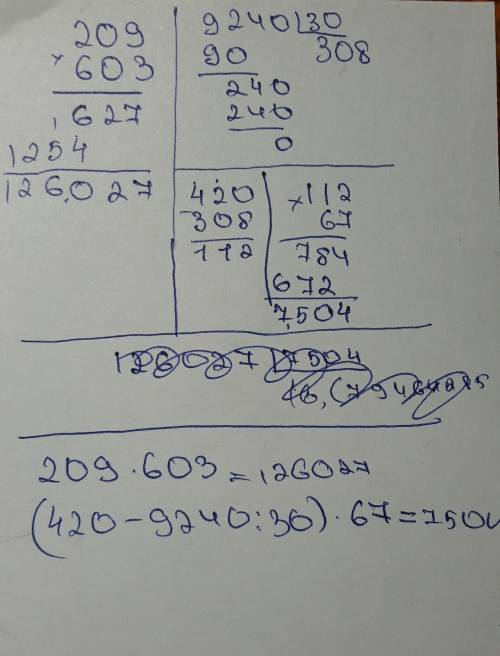 209
× 603
627
1254
126027
9240 30
90 308
240
240
0
420
308
112
× 112
67
784
672
7504
209 · 603 = 126027
(420 - 9240 : 30) · 67 = 7504